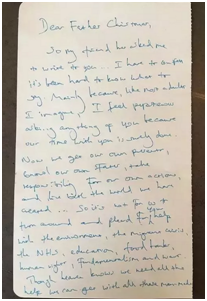 Dear Father Christmas,
So my friend has asked me
to write to you... I have to confess
it's been hard to know what to
say. Mainly because, like most adults
I imagine, I feel
asking anything of you because
our time with you is surely done.
Now we are our own providers,
our own
responsibility for our own actions,
and the world we have
created... So it's not for us to
turn around and plead for help
with the environment, the migrant crisis,
the NHS, education, food banks,
human rights, fundamentalism and war.
Though heaven knows we need all the
help we can get with all these man-made